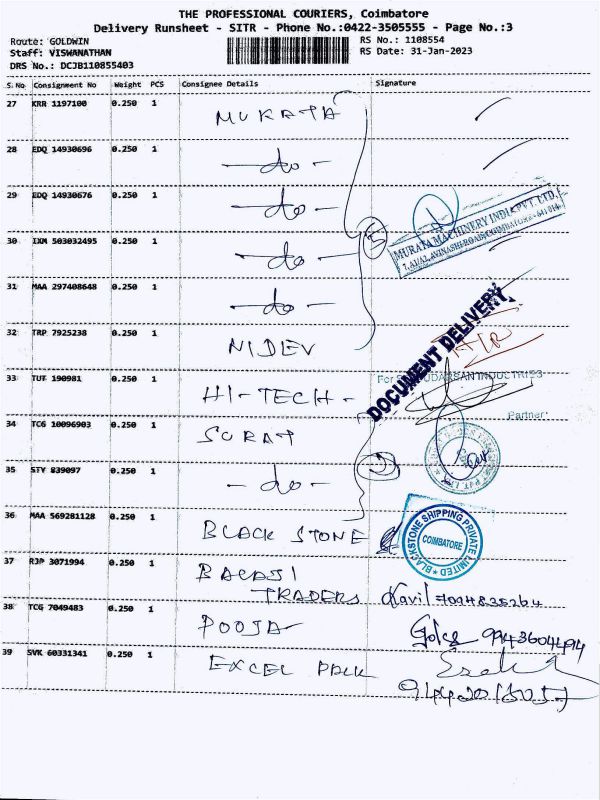 THE PROFESSIONAL COURIERS, Coimbatore
Delivery Runsheet - SITR - Phone No.:0422-3505555 - Page No.:3
Route: GOLDWIN RS No.: 1108554
Staff: VISWANATHAN RS Date: 31-Jan-2023
DRS No.: DCJB110855403
S.No Consignment No Weight PCS Consignee Details Signature
27 KRR 1197100 0.250 1 MURATA
28 EDQ 14930696 0.250 1 -do-
29 EDQ 14930676 0.250 1 -do-
MURATA MACHINERY INDIA PVT. LTD.
30 IXM 503032495 0.250 1 -do- 5
31 MAA 297408648 0.250 1 -do-
DOCUMENT DELIVERY
32 TRP 7925238 0.250 1 NIDEV
33 TUT 190981 0.250 1 HI-TECH-
Partner
34 TCG 10096903 0.250 1 SURAT
35 STY 839097 0.250 1 -do-
36 MAA 569281128 0.250 1 BLACK STONE
BLACKSTONE SHIPPING PRIVATE LIMITED
COIMBATORE
37 RJP 3071994 0.250 1 BALAJI
TRADERS
38 TCG 7049483 0.250 1 POOJA
39 SVK 60331341 0.250 1 EXCEL PACK